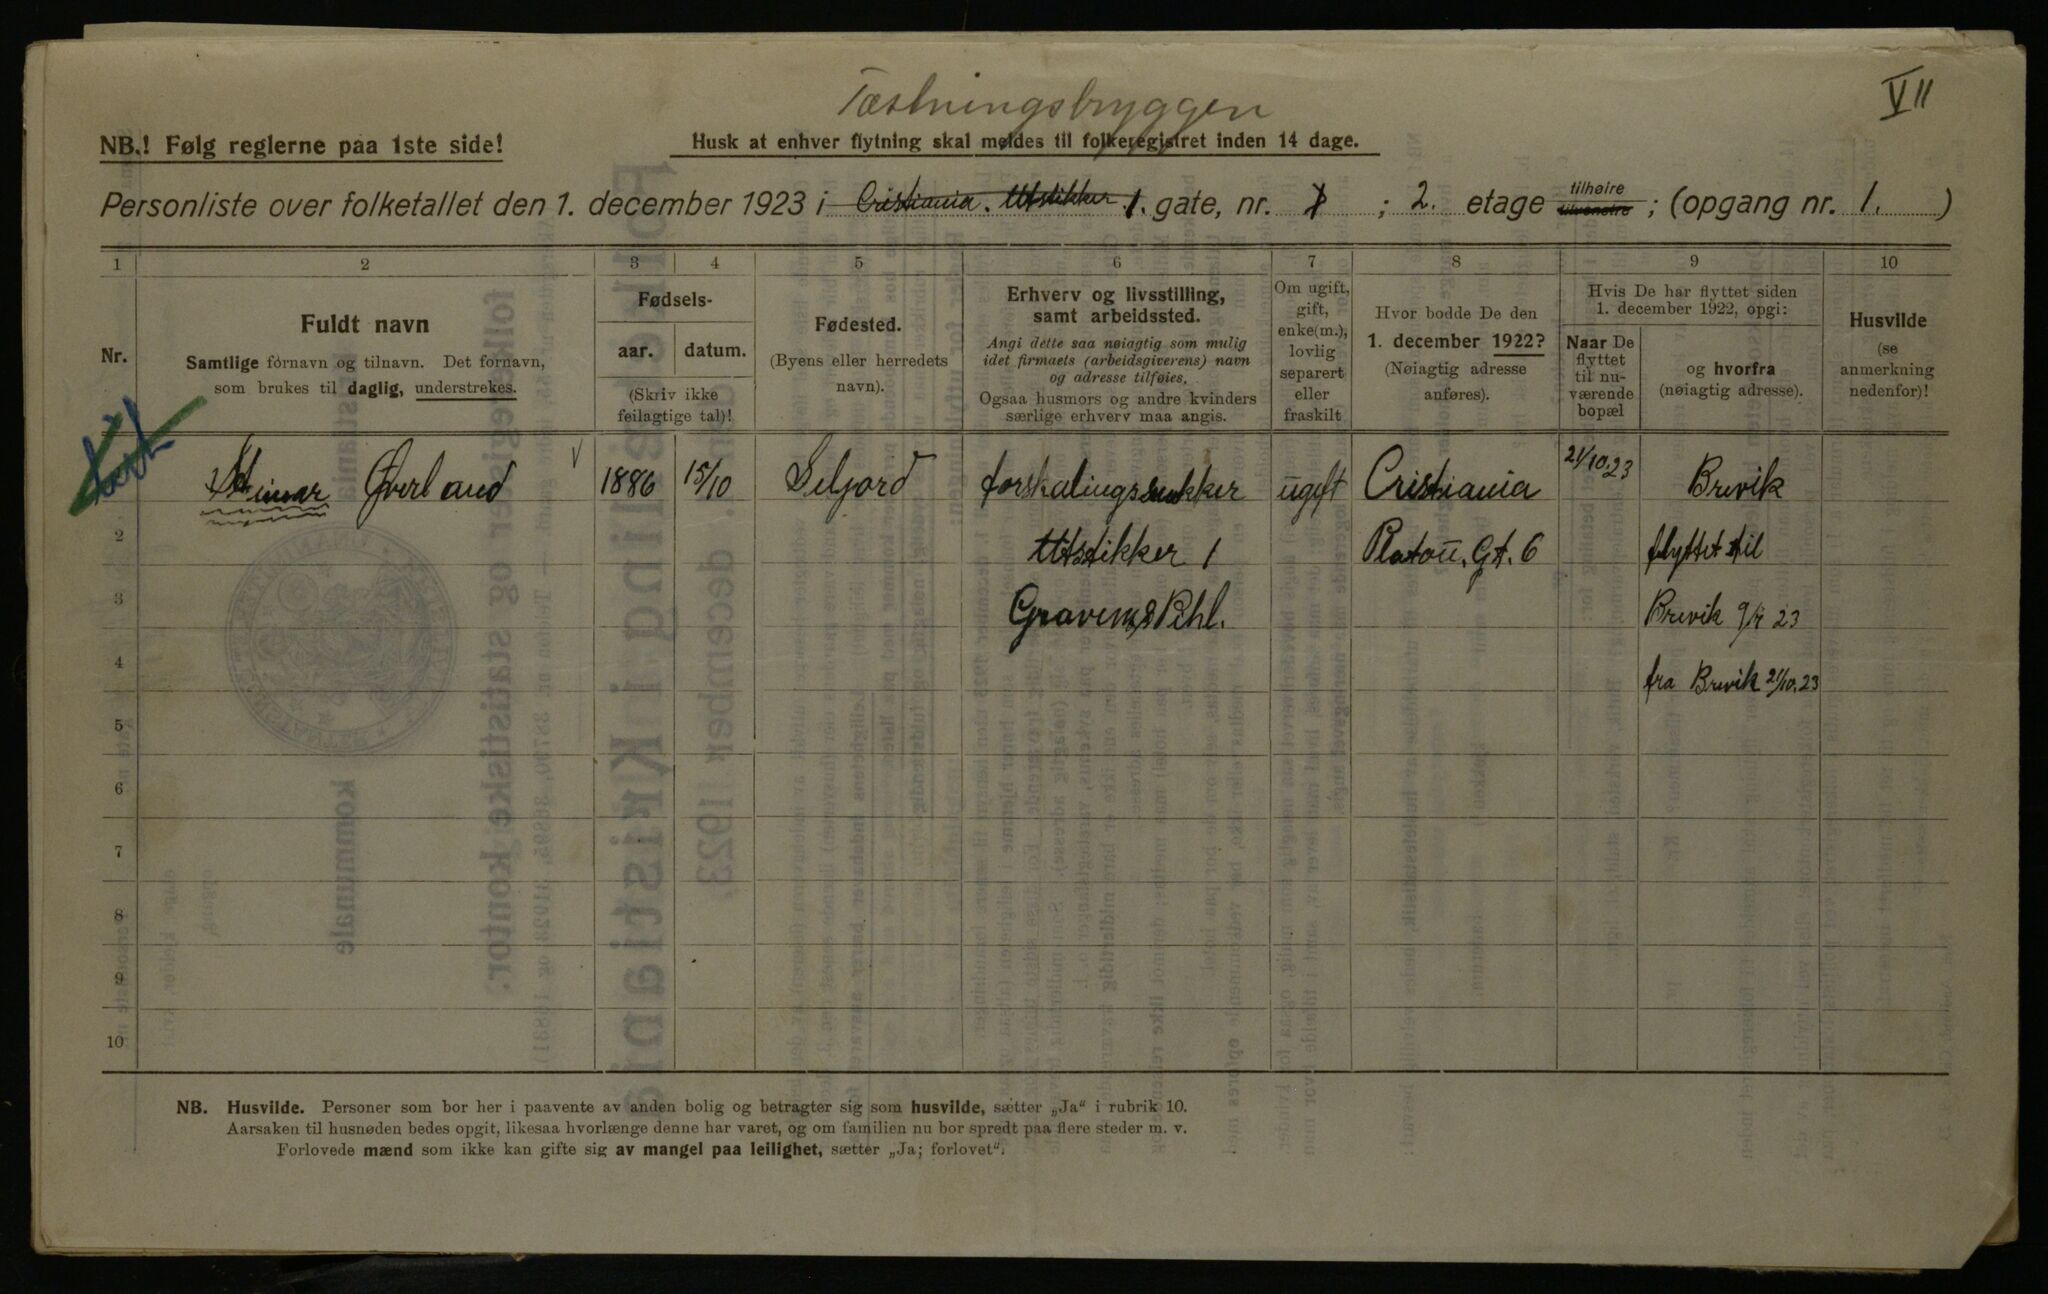 VII
Fæstningsbryggen
NB.! Følg reglerne paa 1ste side!
Husk at enhver flytning skal meldes til folkeregistret inden 14 dage.
Personliste over folketallet den 1. december 1923 i Cristiania. Utstikker 1. gate, nr. 1 ; 2. etage tilhøire tilvenstre ; (opgang nr. 1. )
1 2 3 4 5 6 7 8 9 10
Nr.
Fuldt navn
Samtlige fornavn og tilnavn. Det fornavn,
som brukes til daglig, understrekes.
Fødsels-
aar. datum.
(Skriv ikke
feilagtige tal)!
Fødested.
(Byens eller herredets
navn).
Erhverv og livsstilling,
samt arbeidssted.
Angi dette saa nøiagtig som mulig
idet firmaets (arbeidsgiverens) navn
og adresse tilføies.
Ogsaa husmors og andre kvinders
særlige erhverv maa angis.
Om ugift,
gift,
enke(m.),
lovlig
separert
eller
fraskilt
Hvor bodde De den
1. december 1922?
(Nøiagtig adresse
anføres).
Hvis De har flyttet siden
1. december 1922, opgi:
Naar De
flyttet
til nu-
værende
bopæl
og hvorfra
(nøiagtig adresse).
Husvilde
(se
anmerkning
nedenfor)!
Øverland 1886 15/10 Seljord forskalingssnekker ugift Cristiania 21/10.23 Brevik
2 Utstikker 1 Platou. Gt. 6 flyttet til
3 Brevik 23
4 fra Brevik 21/10.23
5
6
7
8
9
10
NB. Husvilde. Personer som bor her i paavente av anden bolig og betragter sig som husvilde, sætter „Ja“ i rubrik 10.
Aarsaken til husnøden bedes opgit, likesaa hvorlænge denne har varet, og om familien nu bor spredt paa flere steder m. v.
Forlovede mænd som ikke kan gifte sig av mangel paa leilighet, sætter „Ja; forlovet“.